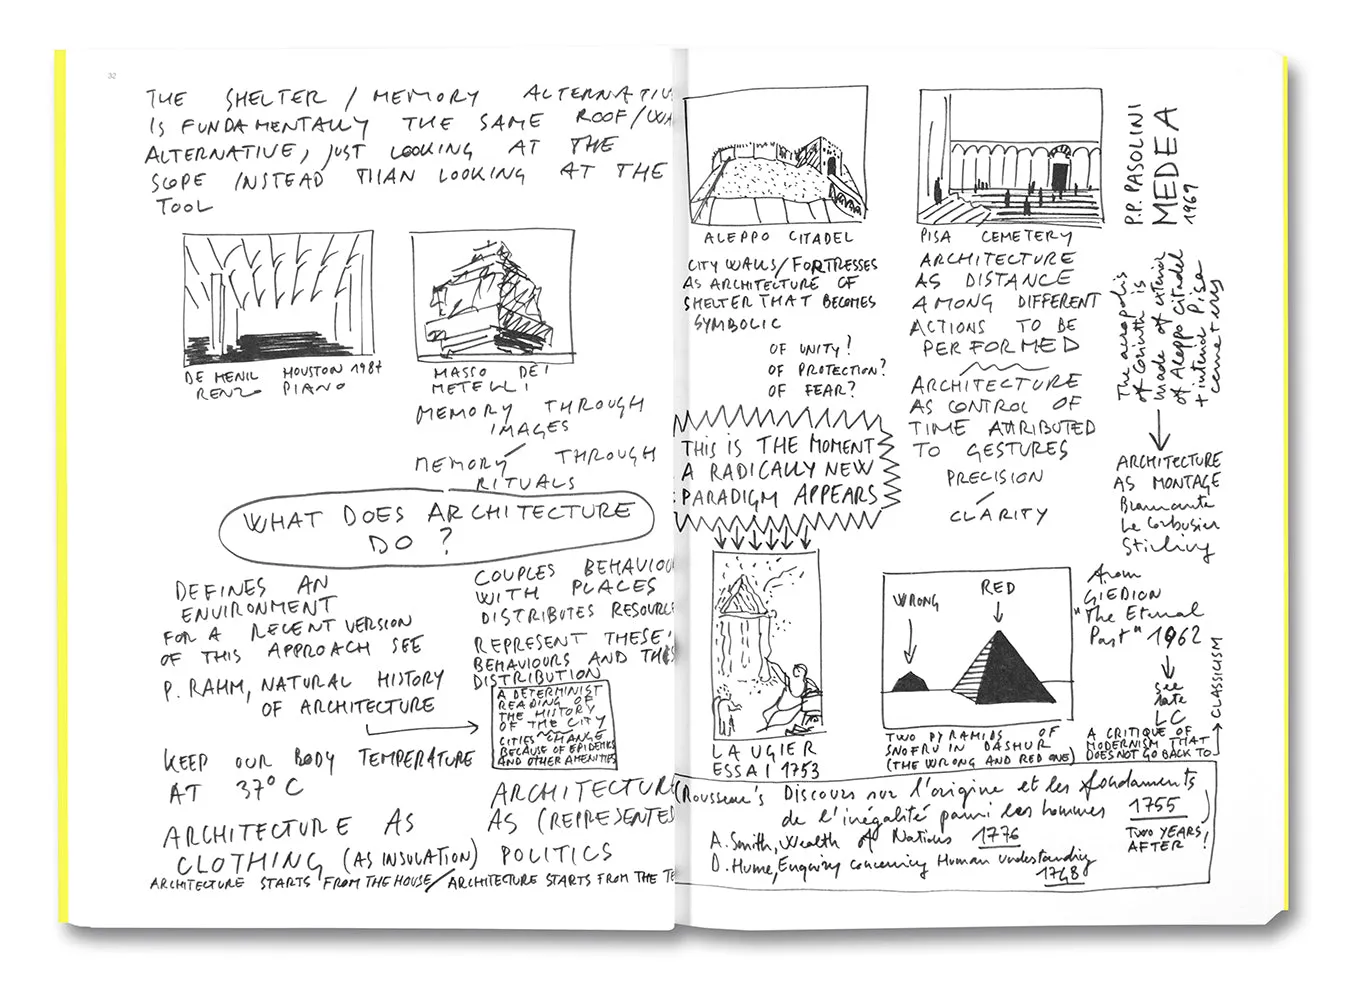 32
THE SHELTER / MEMORY ALTERNATIV
IS FUNDAMENTALLY THE SAME ROOF/WA
ALTERNATIVE, JUST LOOKING AT THE
SCOPE INSTEAD THAN LOOKING AT THE
TOOL
DE MENIL HOUSTON 1987
RENZO PIANO
MASSO DEI
METELLI
MEMORY THROUGH
IMAGES
/
MEMORY THROUGH
RITUALS
WHAT DOES ARCHITECTURE
DO ?
DEFINES AN
ENVIRONMENT
FOR A RECENT VERSION
OF THIS APPROACH SEE
P. RAHM, NATURAL HISTORY
OF ARCHITECTURE
KEEP OUR BODY TEMPERATURE
AT 37° C
ARCHITECTURE AS
CLOTHING (AS INSULATION)
COUPLES BEHAVIOU
WITH PLACES
DISTRIBUTES RESOURCE
REPRESENT THESE
BEHAVIOURS AND THIS
DISTRIBUTION
A DETERMINIST
READING OF
THE HISTORY
OF THE CITY
CITIES CHANGE
BECAUSE OF EPIDEMICS
AND OTHER AMENITIES
ARCHITECTURE
AS (REPRESENTED
POLITICS
ARCHITECTURE STARTS FROM THE HOUSE/ARCHITECTURE STARTS FROM THE TE
ALEPPO CITADEL
CITY WALLS/FORTRESSES
AS ARCHITECTURE OF
SHELTER THAT BECOMES
SYMBOLIC
OF UNITY?
OF PROTECTION?
OF FEAR?
THIS IS THE MOMENT
A RADICALLY NEW
PARADIGM APPEARS
LAUGIER
ESSAI 1753
PISA CEMETERY
ARCHITECTURE
AS DISTANCE
AMONG DIFFERENT
ACTIONS TO BE
PERFORMED
ARCHITECTURE
AS CONTROL OF
TIME ATTRIBUTED
TO GESTURES
PRECISION
/
CLARITY
WRONG
RED
TWO PYRAMIDS OF
SNOFRU IN DASHUR
(THE WRONG AND RED ONE)
P.P. PASOLINI
MEDEA
1969
The acropolis
of Corinth is
made of exterior
of Aleppo Citadel
+ interior Pisa
cemetery
ARCHITECTURE
AS MONTAGE
Bramante
Le Corbusier
Stirling
from
GIEDION
"The Eternal
Past" 1962
see
late
LC
A CRITIQUE OF
MODERNISM THAT
DOES NOT GO BACK TO
CLASSICISM
(Rousseau's Discours sur l'origine et les fondaments
de l'inégalité parmi les hommes 1755
A. Smith, Wealth of Nations 1776
D. Hume, Enquiry Concerning Human Understanding
1748
TWO YEARS
AFTER!